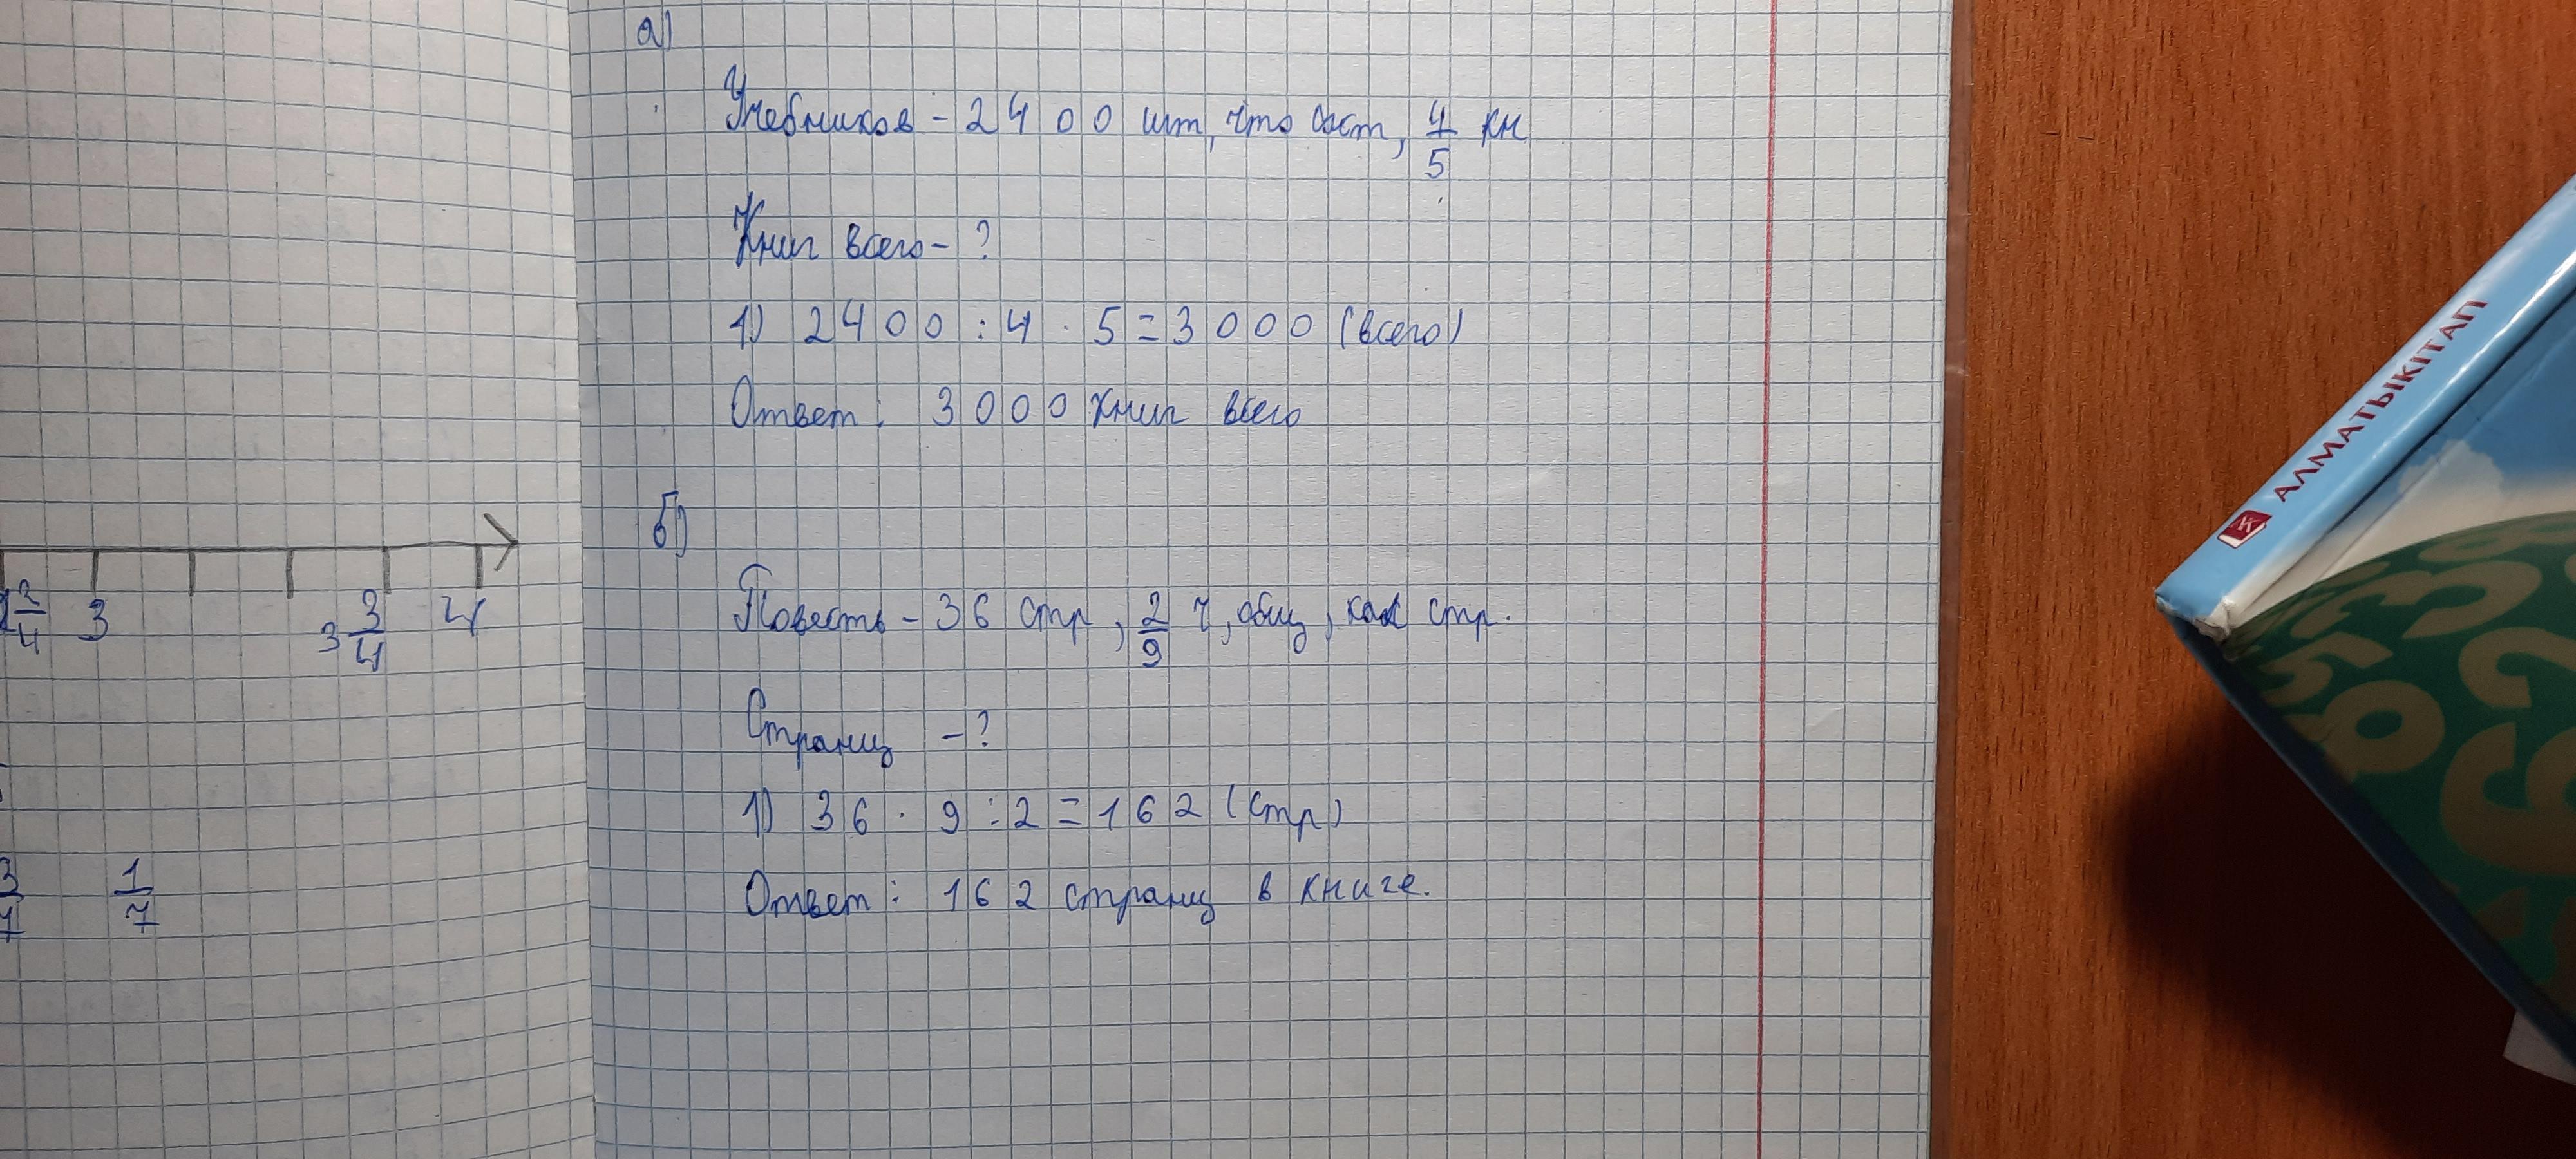 2/4 3 3 3/4 4
1/7
а)
Учебников - 2400 шт, что сост, 4/5 кн
Книг всего - ?
1) 2400 : 4 · 5 = 3000 (всего)
Ответ: 3000 книг всего
б)
Повесть - 36 стр, 2/9 ч, общ, кол стр.
Страниц - ?
1) 36 · 9 : 2 = 162 (стр)
Ответ: 162 страниц в книге.
АЛМАТЫКІТАП